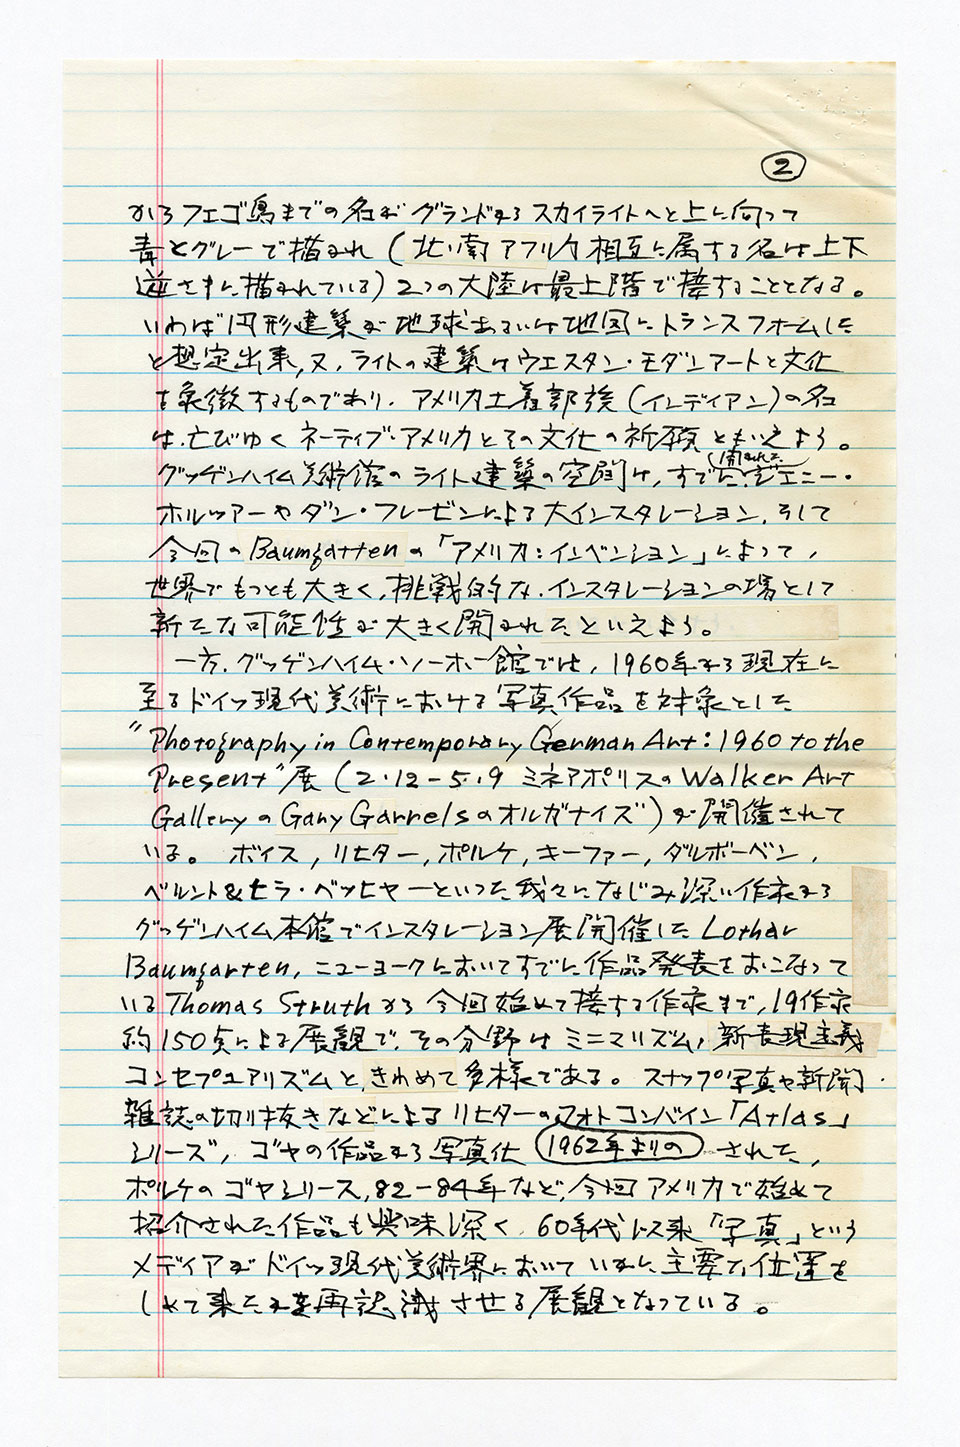 ②
からフエゴ島までの名が グランドからスカイライトへと上に向って
青とグレーで描かれ（北・南アフリカ相互に属する名は上下
逆さまに描かれている）2つの大陸は最上階で接することとなる。
いわば円形建築が地球あるいは地図にトランスフォームした
と想定出来，又，ライトの建築はウエスタン・モダンアートと文化
を象徴するものであり，アメリカ土着部族（インディアン）の名
は，亡びゆくネーティブ・アメリカとその文化の祈願ともいえよう。
グッゲンハイム美術館のライト建築の空間は，すでに開かれたジェニー・
ホルツアーやダン・フレーゼンによる大インスタレーション，そして
今回のBaumgartenの「アメリカ：インベンション」によって，
世界でもっとも大きく，挑戦的な，インスタレーションの場として
新たな可能性が大きく開かれたといえよう。
一方，グッゲンハイム・ソーホー館では，1960年から現在に
至るドイツ現代美術における写真作品を対象とした
“Photography in Contemporary German Art: 1960 to the
Present”展（2・12－5・9 ミネアポリスのWalker Art
GalleryのGary Garrelsのオルガナイズ）が開催されて
いる。ボイス，リヒター，ポルケ，キーファー，ダルボーベン，
ベルント&ヒラ・ベッヒャーといった我々になじみ深い作家から
グッゲンハイム本館でインスタレーション展開催したLothar
Baumgarten，ニューヨークにおいてすでに作品発表をおこなって
いるThomas Struthから今回始めて接する作家まで，19作家
約150点による展観で，その分野はミニマリズム，新表現主義
コンセプュアリズムと，きわめて多様である。スナップ写真や新聞
雑誌の切り抜きなどによるリヒターのフォトコンバイン「Atlas」
シリーズ，ゴヤの作品から写真化 1962年よりの された，
ポルケのゴヤシリース，82－84年など，今回アメリカで始めて
紹介された作品も興味深く，60年代以来「写真」という
メディアがドイツ現代美術界においていかに主要な位置を
しめて来たかを再認識させる展観となっている。